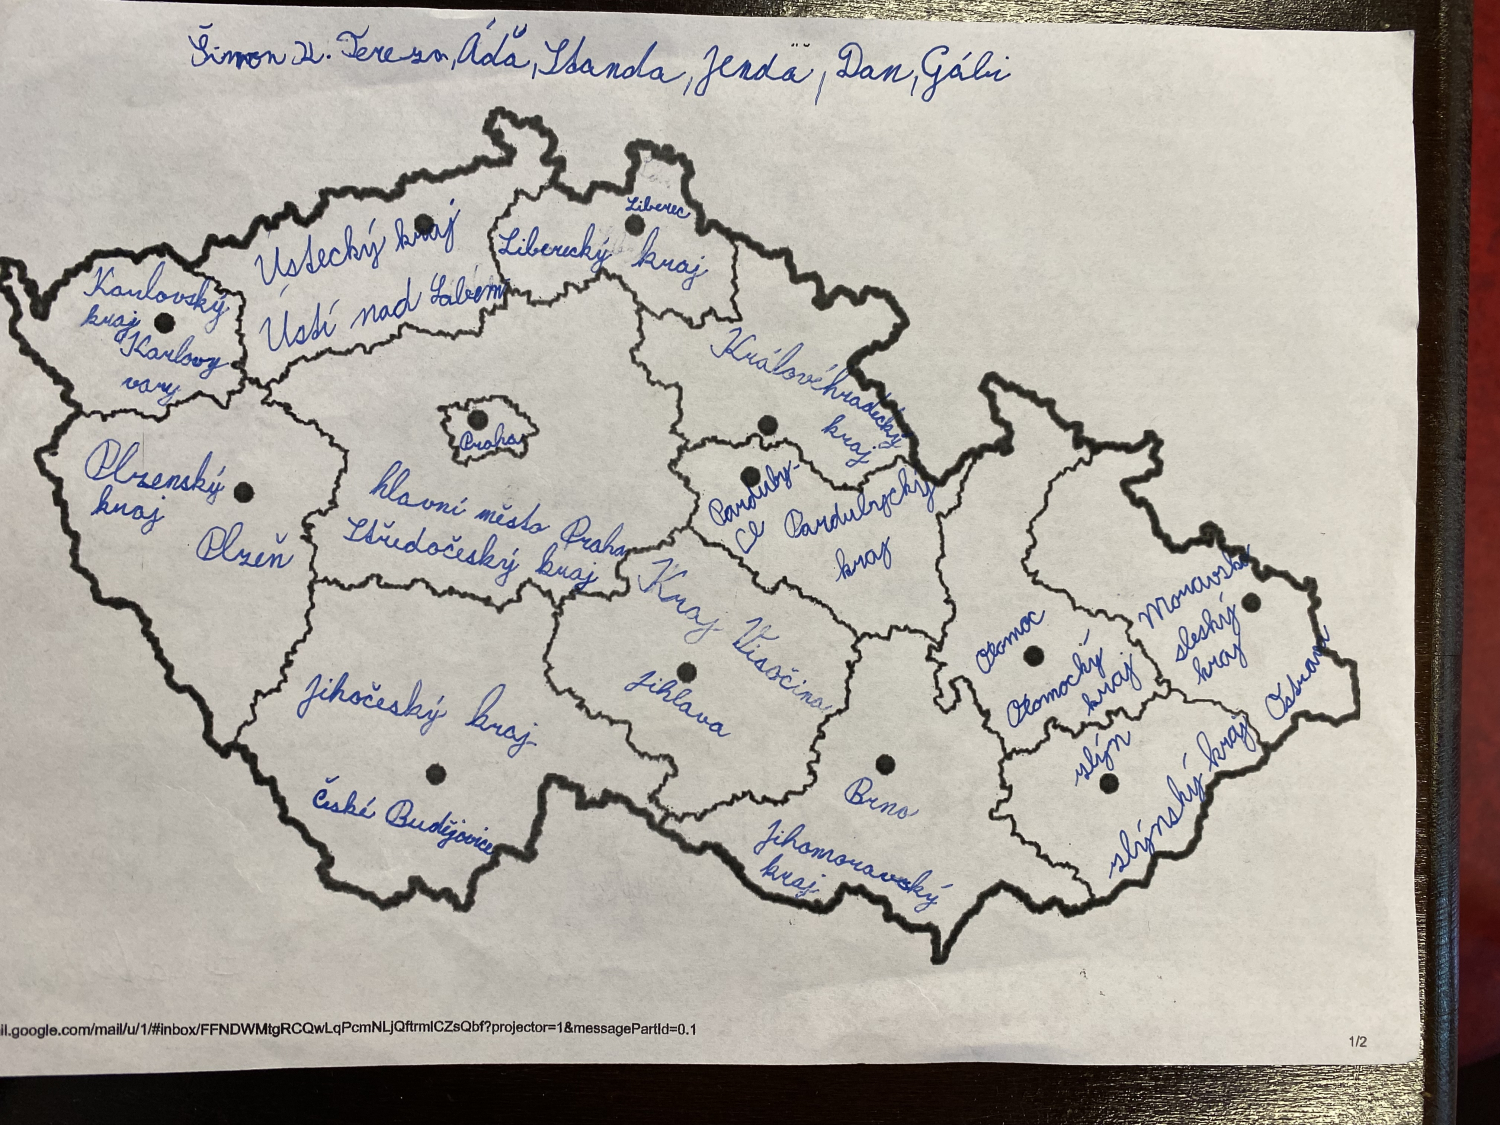 Šimon K. Tereza, Áďa, Standa, Jenda, Dan, Gábi
Liberec
Ústecký kraj
Liberecký kraj
Ústí nad Labem
Karlovský
kraj
Karlovy
vary
Královéhradecký
kraj
Praha
Plzenský
kraj
Plzeň
hlavní město Praha
Středočeský kraj
Pardubi-
ce
Pardubycký
kraj
Kraj Visočina
Jihlava
Olomoc
Olomocký
kraj
Moravsko
sleský
kraj
Ostrava
Jihočeský kraj
České Budějovice
Brno
Jihomoravský
kraj
slýn
slýnský kraj
il.google.com/mail/u/1/#inbox/FFNDWMtgRCQwLqPcmNLjQftrmlCZsQbf?projector=1&messagePartId=0.1
1/2